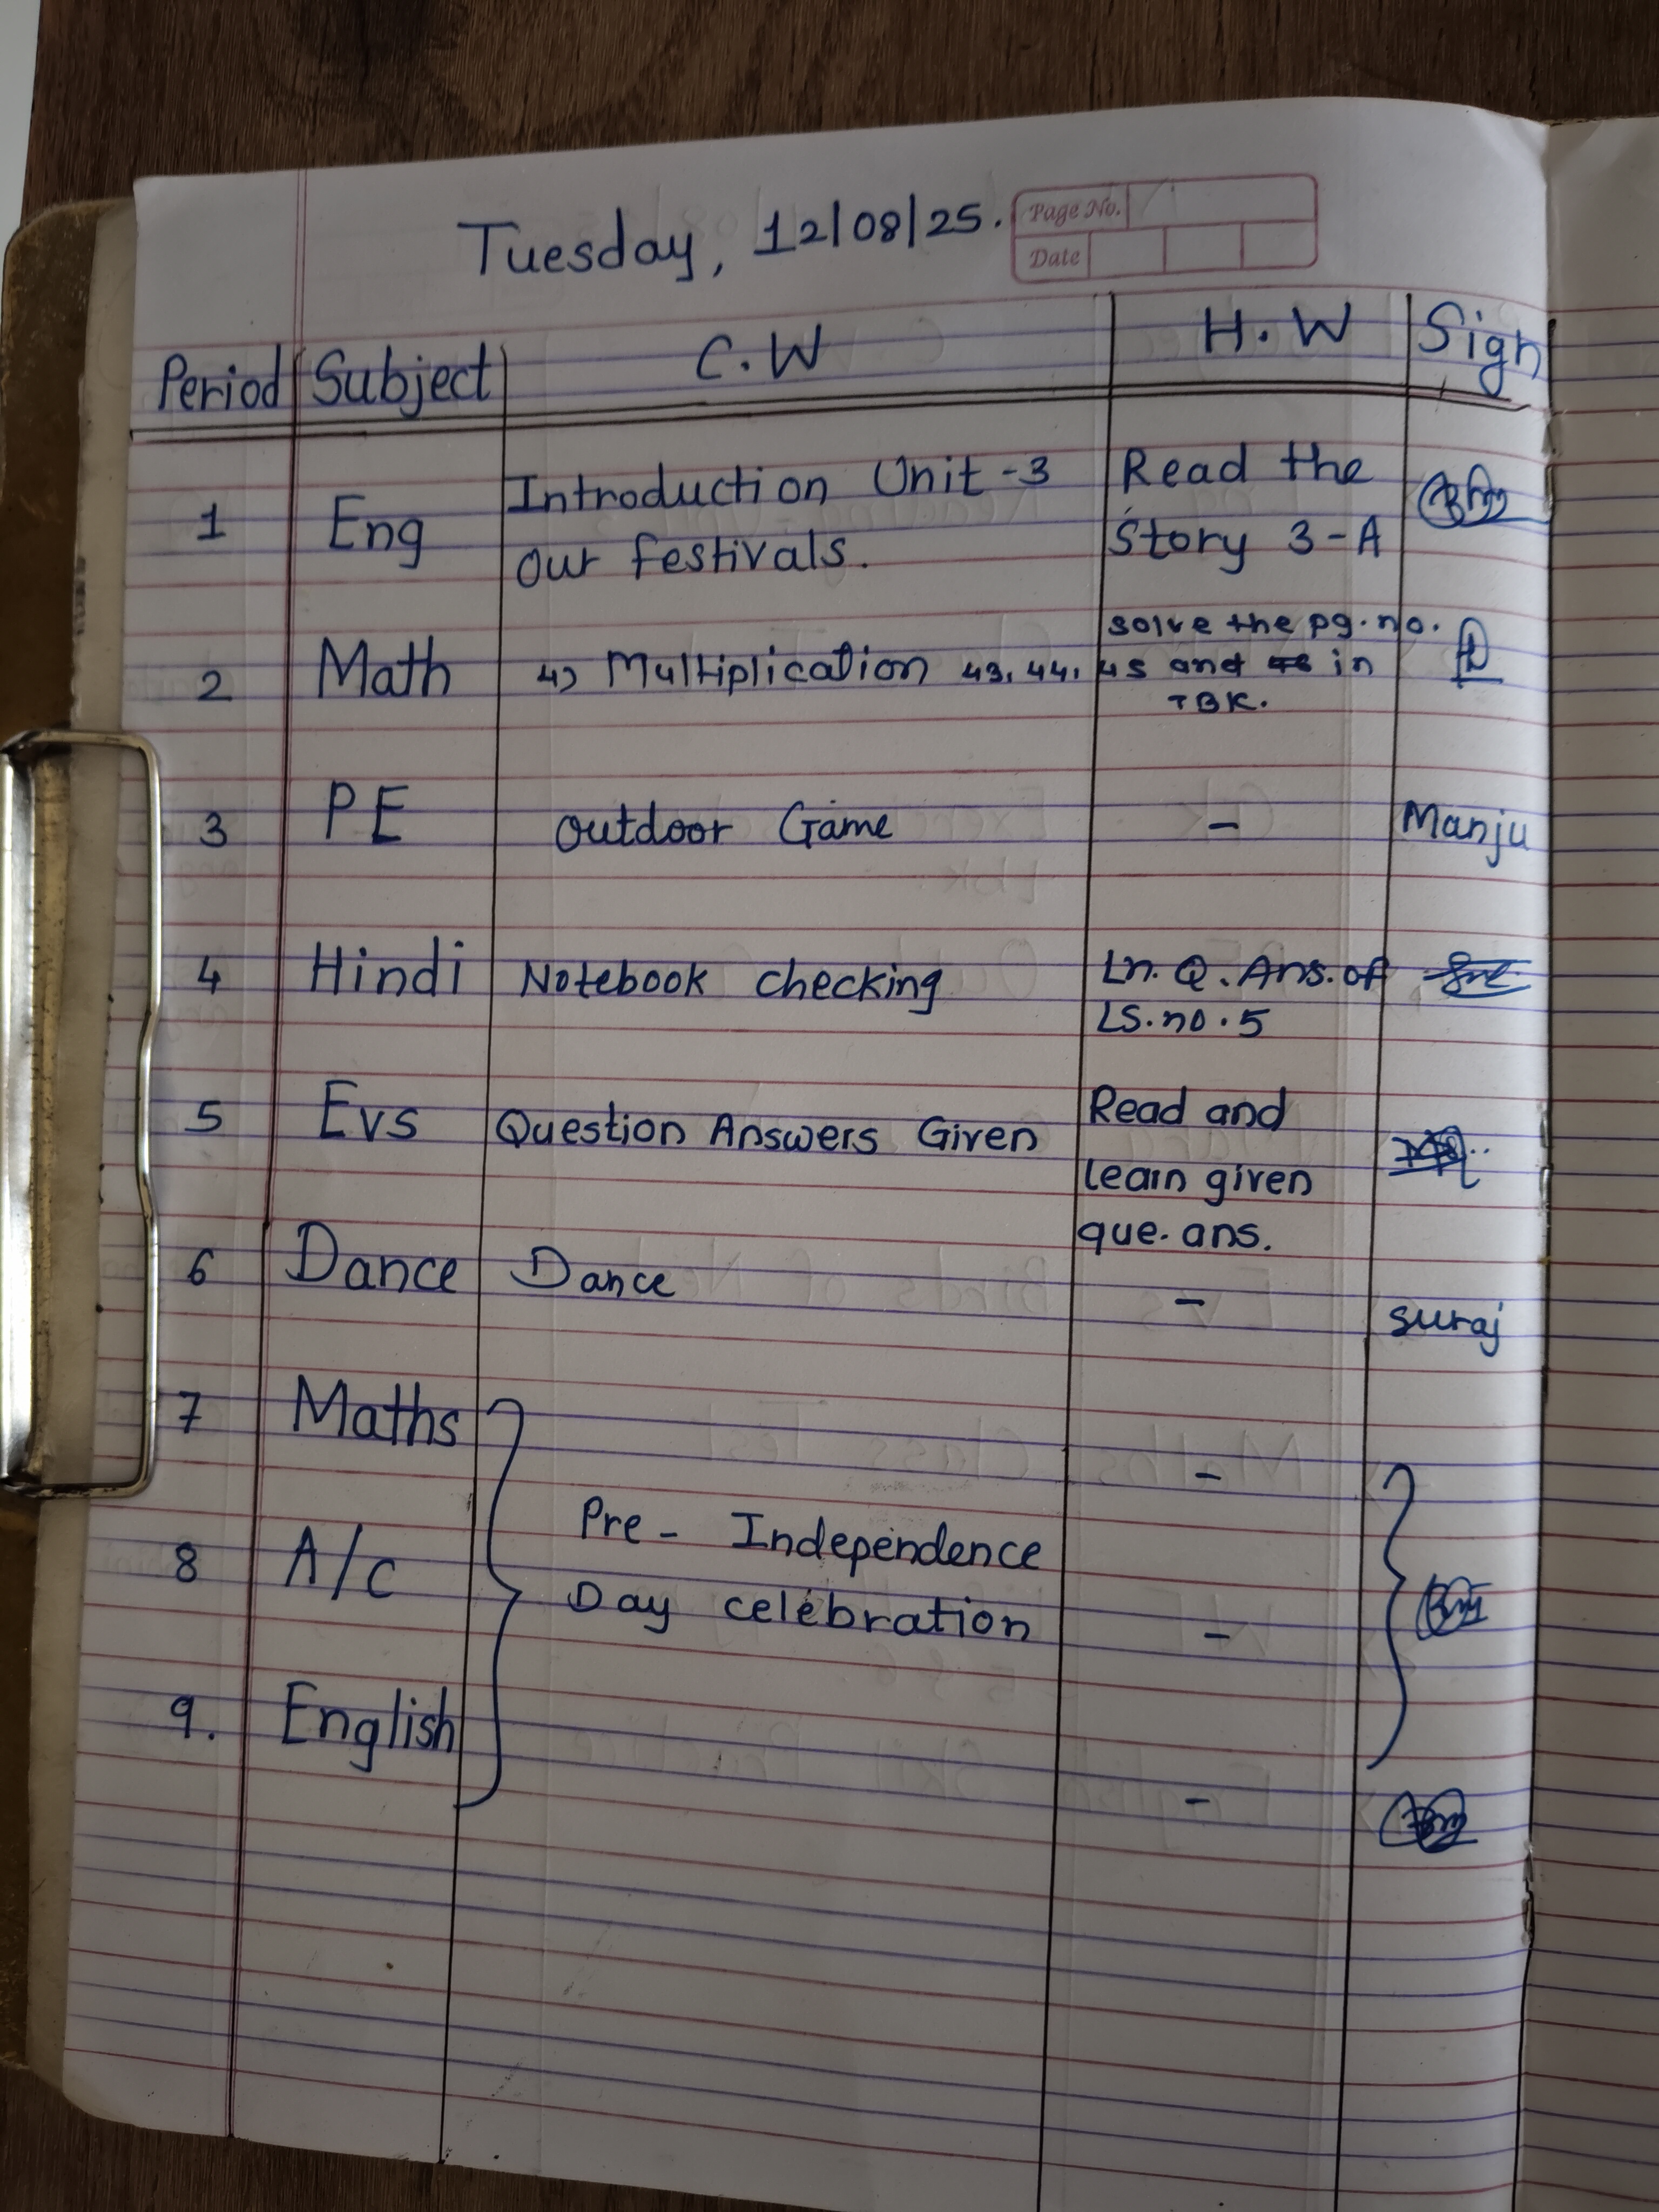 Tuesday, 12/08/25.
Page No.
Date
Period Subject C.W H.W Sign
1 Eng Introduction Unit -3 Read the
our festivals. Story 3-A
solve the pg.no.
2 Math 4) Multiplication 43, 44, 45 and in
TBK.
3 PE Outdoor Game - Manju
4 Hindi Notebook checking Ln. Q. Ans. of
LS.no.5
5 Evs Question Answers Given Read and
learn given
que. ans.
6 Dance Dance - suraj
7 Maths -
Pre- Independence
8 A/c
Day celebration -
9. English
-